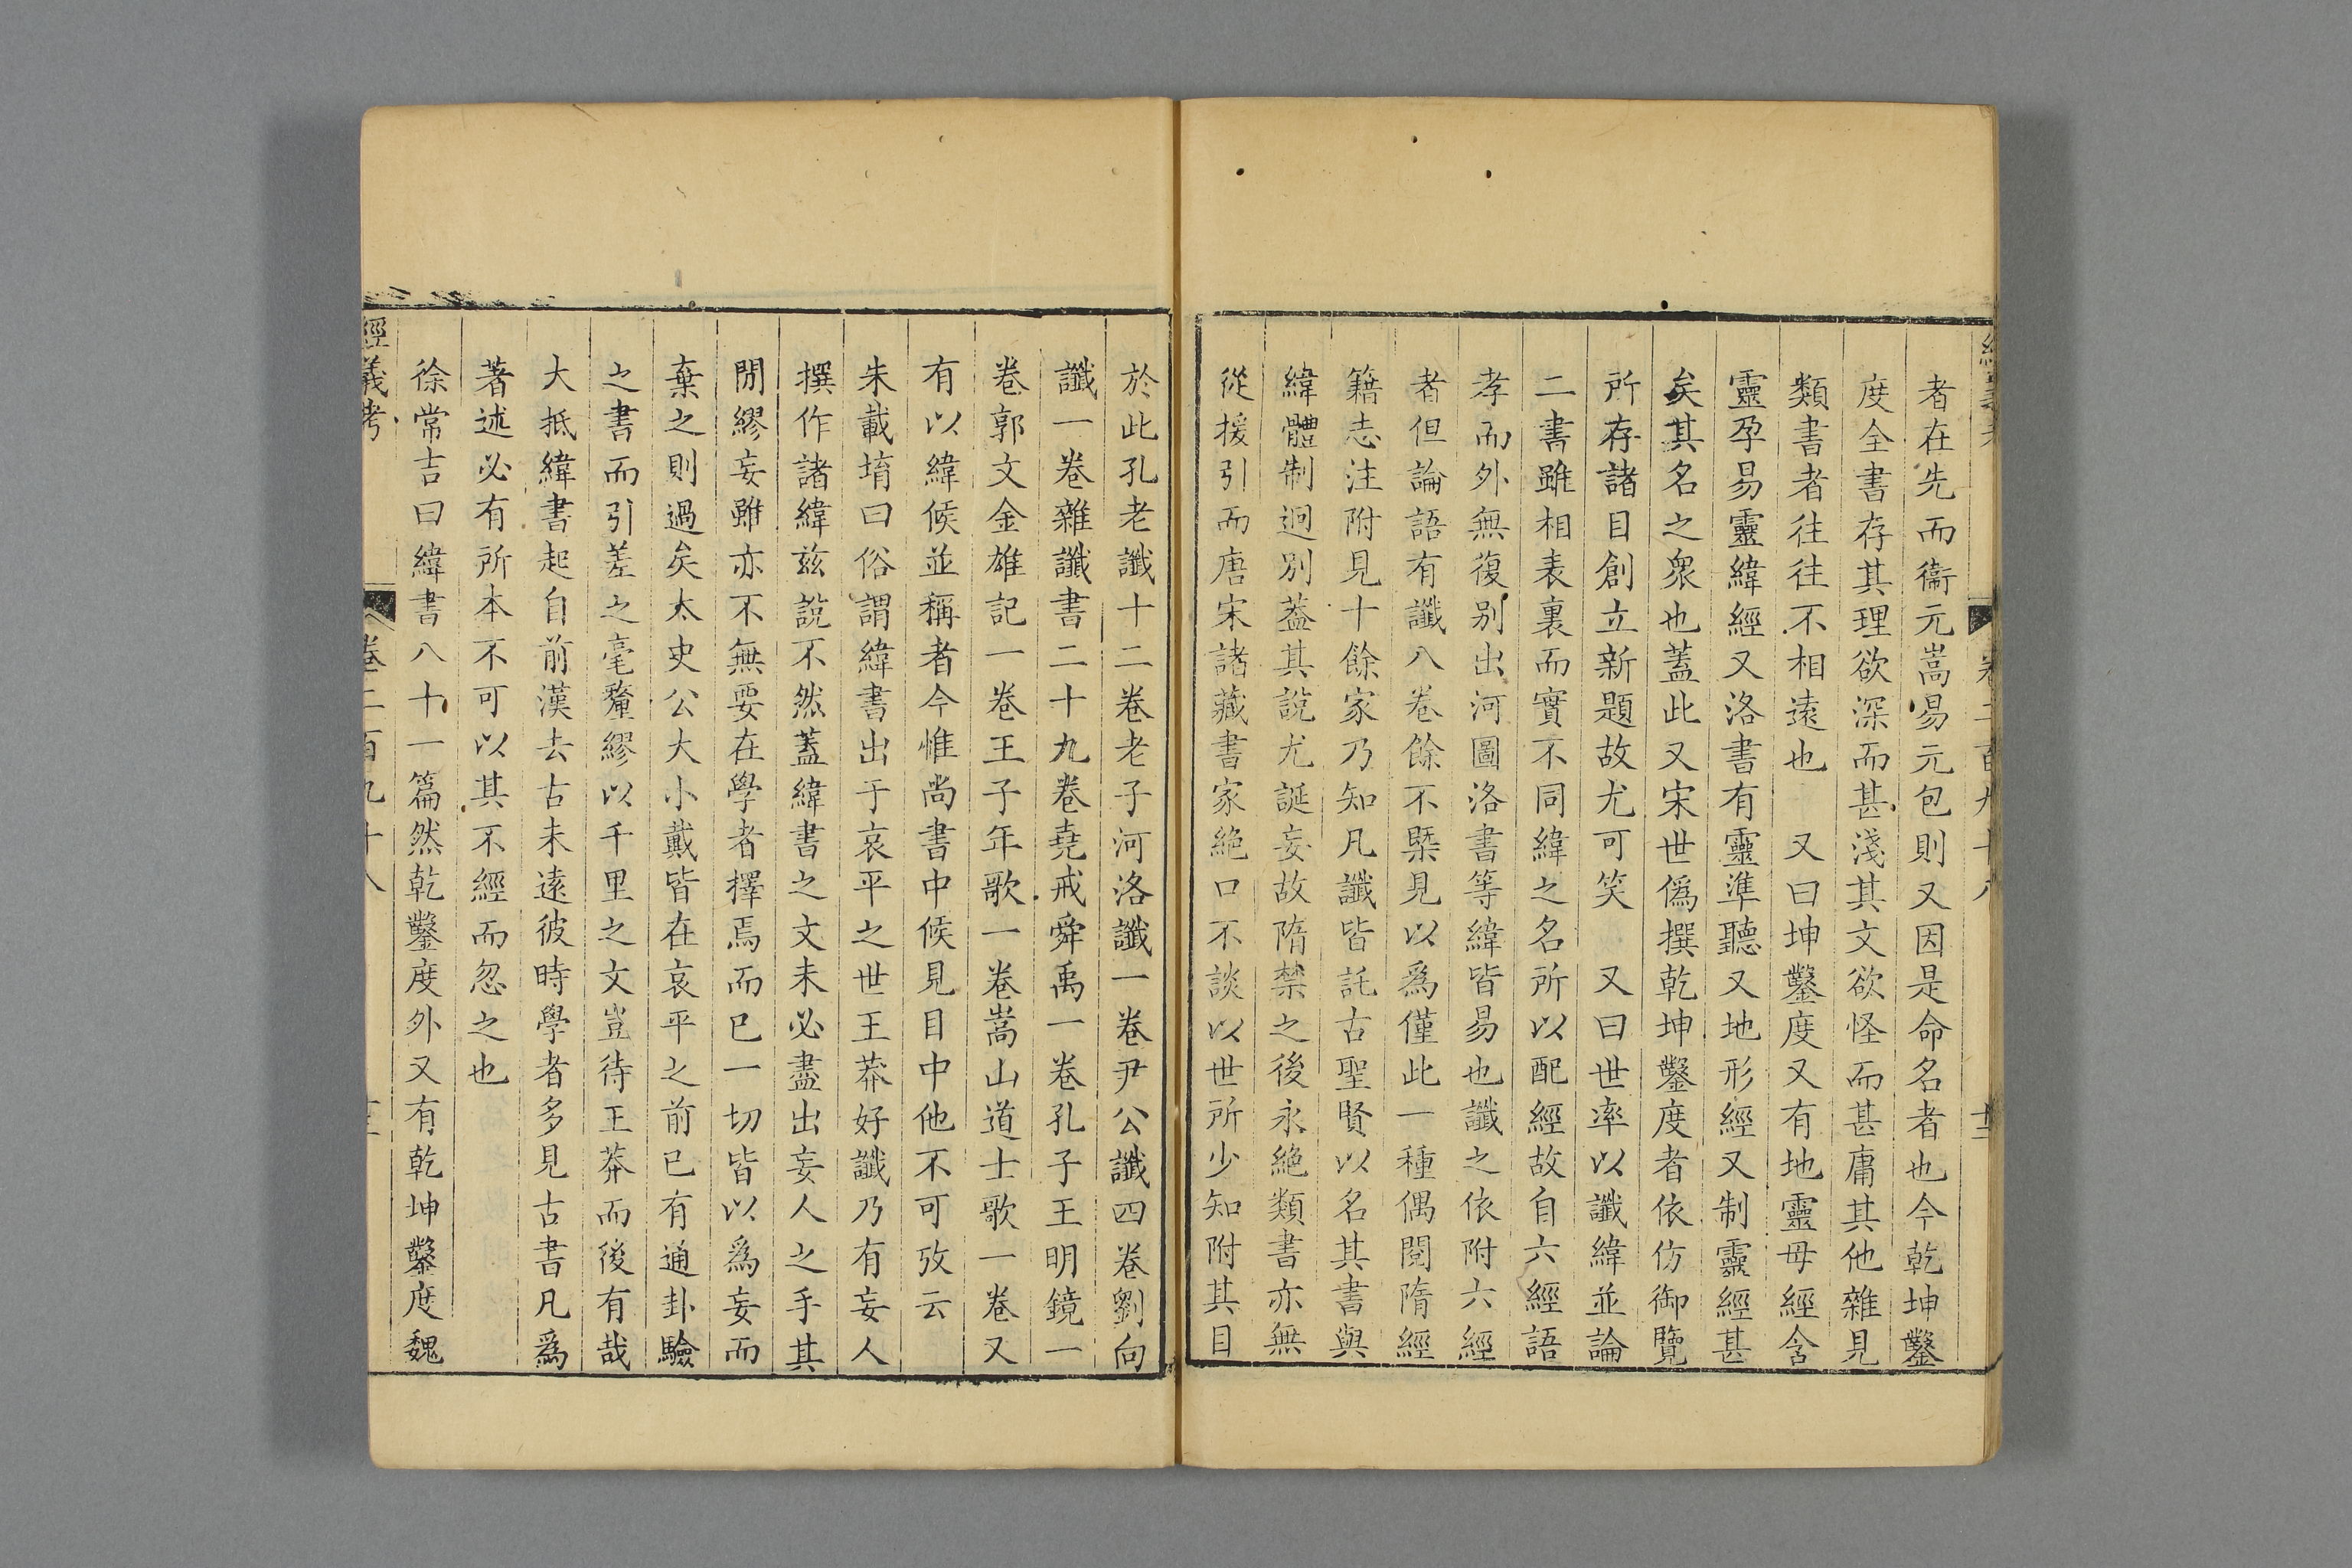 者在先而衞元嵩易元包則又因是命名者也今乾坤鑿
度全書存其理欲深而甚淺其文欲怪而甚庸其他雜見
類書者往往不相遠也　又曰坤鑿度又有地靈母經含
靈孕易靈緯經又洛書有靈準聽又地形經又制靈經甚
矣其名之衆也蓋此又宋世僞撰乾坤鑿度者依仿御覽
所存諸目創立新題故尤可笑　又曰世率以讖緯並論
二書雖相表裏而實不同緯之名所以配經故自六經語
孝而外無復別出河圖洛書等緯皆易也讖之依附六經
者但論語有讖八卷餘不槩見以爲僅此一種偶閱隋經
籍志注附見十餘家乃知凡讖皆託古聖賢以名其書與
緯體制迥別蓋其說尤誕妄故隋禁之後永絶類書亦無
從援引而唐宋諸藏書家絶口不談以世所少知附其目
於此孔老讖十二卷老子河洛讖一卷尹公讖四卷劉向
讖一卷雜讖書二十九卷堯戒舜禹一卷孔子王明鏡一
卷郭文金雄記一卷王子年歌一卷嵩山道士歌一卷又
有以緯候並稱者今惟尚書中候見目中他不可攷云
朱載堉曰俗謂緯書出于哀平之世王莽好讖乃有妄人
撰作諸緯兹說不然蓋緯書之文未必盡出妄人之手其
閒繆妄雖亦不無要在學者擇焉而已一切皆以爲妄而
棄之則過矣太史公大小戴皆在哀平之前已有通卦驗
之書而引差之毫釐繆以千里之文豈待王莽而後有哉
大抵緯書起自前漢去古未遠彼時學者多見古書凡爲
著述必有所本不可以其不經而忽之也
徐常吉曰緯書八十一篇然乾鑿度外又有乾坤鑿度魏
經義考　卷二百九十八